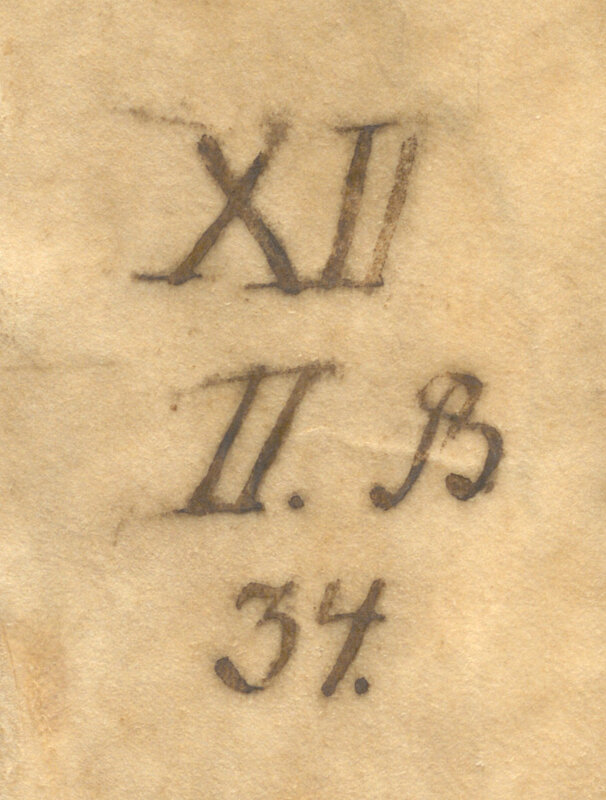 XII
II. B
34.